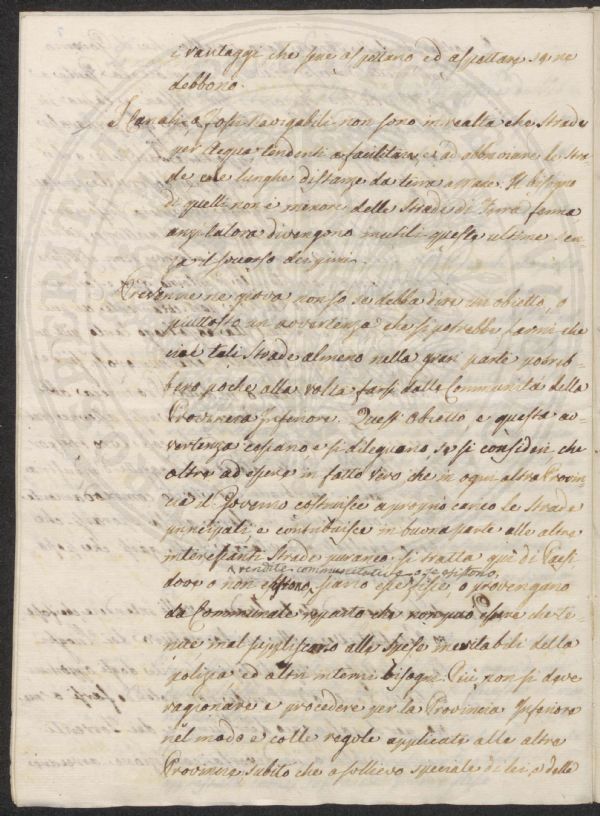 i vantaggi che può aspettano ed aspettare se ne
debbono.
I Canali o Fossi navigabili non sono in realtà che strade
per acqua tendenti a facilitare, ed ad abbreviare le stra
de e le lunghe distanze da terra a mare. Il bisogno
di quelli non è minore delle strade di Terra ferma
anzi talora divengono inutili queste ultime sen
za il soccorso dei primi.
Prevenirne giova non so se debba dire un obietto, o
piuttosto un avvertenza che si potrebbe farmi che
cioè tali strade almeno nella gran parte potreb=
bero poche alla volta farsi dalle Communità della
Provincia Inferiore. Questo obietto e questa av=
vertenza cessano e si dileguano, se si consideri che
oltre ad essere in fatto vero, che in ogni altra Provin
cia il Governo costruisce a proprio carico le strade
principali, e contribuisce in buona parte alle altre
interessanti strade puranco si tratta qui di Paesi
rendite communitative o se esistono,
dove o non esistono, siano esse fisse, o provengano
da Communale reparto che non può essere che te=
nue mal suppliscono alle spese inevitabili della
polizia ed altri interni bisogni. Più non si deve
ragionare e procedere per la Provincia Inferiore
nel modo e colle regole applicate alle altre
Provincie subito che a sollievo speciale di lei, e delle